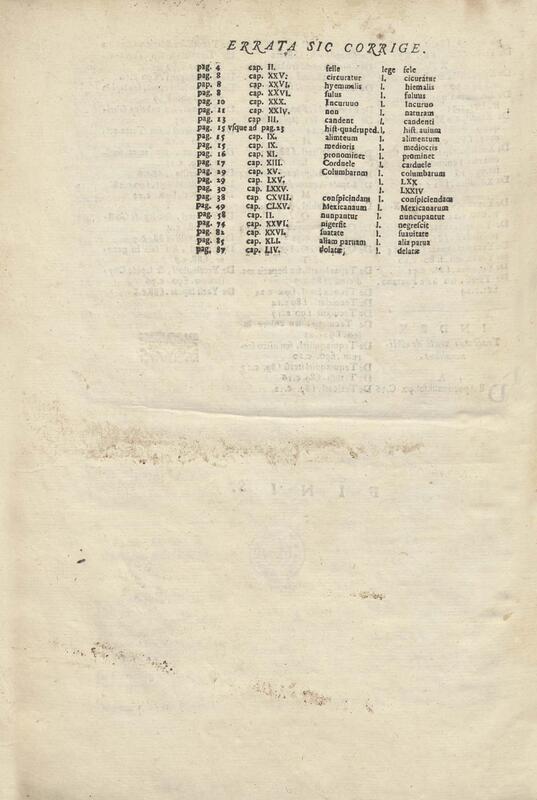 ERRATA SIC CORRIGE.
pag. 4 cap. II. felle lege fele
pag. 8 cap. XXV. circuratur l. cicurátur
pap. 8 cap. XXVI. hyemmalis l. hiemalis
pag. 8 cap. XXVI. fulus l. fuluus
pag. 10 cap. XXX. Incuruuo l. Incuruo
pag. 11 cap. XXIV. non l. naturam
pag. 13 cap III. candent l. candenti
pag. 15 vſque ad pag.23 hiſt.quadruped. l. hiſt. auium
pag. 15 cap. IX. alimteum l. alimentum
pag. 15 cap. IX. medioris l. mediocris
pag. 16 cap. XI. pronominet l. prominet
pag. 17 cap. XIII. Corduele l. carduele
pag. 29 cap. XV. Columbarum l. columbarum
pag. 29 cap. LXV. l. LXX
pag. 30 cap. LXXV. l. LXXIV
pag. 38 cap CXVII. conſpiciendam l. conſpiciendam
pag. 49 cap. CLXV. Mexicanaum l. Mexicanarum
pag. 58 cap. II. nunpantur l. nuncupantur
pag. 74 cap. XXVI. nigerſit l. negreſcit
pag. 82 cap. XXVI. ſuatate l. ſuauitate
pag. 85 cap. XLI. aliam paruam l. alia parua
pag. 87 cap. LIV. dolatæ l. delatæ